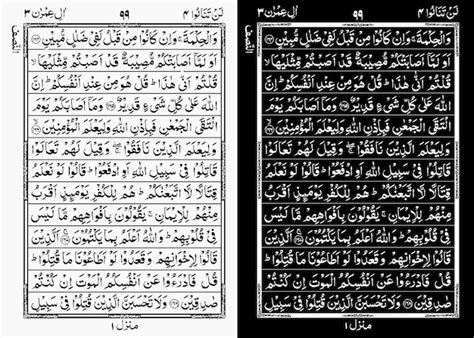 لَنْ تَنَالُوا ٤ ٩٩ اٰلِ عِمْرٰن ٣
وَالْحِكْمَةَ ۚ وَاِنْ كَانُوْا مِنْ قَبْلُ لَفِيْ ضَلٰلٍ مُّبِيْنٍ ۝١٦٤
اَوَلَمَّاۤ اَصَابَتْكُمْ مُّصِيْبَةٌ قَدْ اَصَبْتُمْ مِّثْلَيْهَا ۙ
قُلْتُمْ اَنّٰى هٰذَا ؕ قُلْ هُوَ مِنْ عِنْدِ اَنْفُسِكُمْ ؕ اِنَّ
اللّٰهَ عَلٰى كُلِّ شَىْءٍ قَدِيْرٌ ۝١٦٥ وَمَاۤ اَصَابَكُمْ يَوْمَ
الْتَقَى الْجَمْعٰنِ فَبِاِذْنِ اللّٰهِ وَلِيَعْلَمَ الْمُؤْمِنِيْنَ ۝١٦٦
وَلِيَعْلَمَ الَّذِيْنَ نَافَقُوْا ۖ وَقِيْلَ لَهُمْ تَعَالَوْا
قَاتِلُوْا فِيْ سَبِيْلِ اللّٰهِ اَوِ ادْفَعُوْا ؕ قَالُوْا لَوْ نَعْلَمُ
قِتَالًا لَّا تَّبَعْنٰكُمْ ؕ هُمْ لِلْكُفْرِ يَوْمَئِذٍ اَقْرَبُ
مِنْهُمْ لِلْاِيْمَانِ ۚ يَقُوْلُوْنَ بِاَفْوَاهِهِمْ مَّا لَيْسَ
فِيْ قُلُوْبِهِمْ ؕ وَاللّٰهُ اَعْلَمُ بِمَا يَكْتُمُوْنَ ۝١٦٧ اَلَّذِيْنَ
قَالُوْا لِاِخْوَانِهِمْ وَقَعَدُوْا لَوْ اَطَاعُوْنَا مَا قُتِلُوْا ؕ
قُلْ فَادْرَءُوْا عَنْ اَنْفُسِكُمُ الْمَوْتَ اِنْ كُنْتُمْ
صٰدِقِيْنَ ۝١٦٨ وَلَا تَحْسَبَنَّ الَّذِيْنَ قُتِلُوْا فِيْ سَبِيْلِ
منزل ١
لَنْ تَنَالُوا ٤ ٩٩ اٰلِ عِمْرٰن ٣
وَالْحِكْمَةَ ۚ وَاِنْ كَانُوْا مِنْ قَبْلُ لَفِيْ ضَلٰلٍ مُّبِيْنٍ ۝١٦٤
اَوَلَمَّاۤ اَصَابَتْكُمْ مُّصِيْبَةٌ قَدْ اَصَبْتُمْ مِّثْلَيْهَا ۙ
قُلْتُمْ اَنّٰى هٰذَا ؕ قُلْ هُوَ مِنْ عِنْدِ اَنْفُسِكُمْ ؕ اِنَّ
اللّٰهَ عَلٰى كُلِّ شَىْءٍ قَدِيْرٌ ۝١٦٥ وَمَاۤ اَصَابَكُمْ يَوْمَ
الْتَقَى الْجَمْعٰنِ فَبِاِذْنِ اللّٰهِ وَلِيَعْلَمَ الْمُؤْمِنِيْنَ ۝١٦٦
وَلِيَعْلَمَ الَّذِيْنَ نَافَقُوْا ۖ وَقِيْلَ لَهُمْ تَعَالَوْا
قَاتِلُوْا فِيْ سَبِيْلِ اللّٰهِ اَوِ ادْفَعُوْا ؕ قَالُوْا لَوْ نَعْلَمُ
قِتَالًا لَّا تَّبَعْنٰكُمْ ؕ هُمْ لِلْكُفْرِ يَوْمَئِذٍ اَقْرَبُ
مِنْهُمْ لِلْاِيْمَانِ ۚ يَقُوْلُوْنَ بِاَفْوَاهِهِمْ مَّا لَيْسَ
فِيْ قُلُوْبِهِمْ ؕ وَاللّٰهُ اَعْلَمُ بِمَا يَكْتُمُوْنَ ۝١٦٧ اَلَّذِيْنَ
قَالُوْا لِاِخْوَانِهِمْ وَقَعَدُوْا لَوْ اَطَاعُوْنَا مَا قُتِلُوْا ؕ
قُلْ فَادْرَءُوْا عَنْ اَنْفُسِكُمُ الْمَوْتَ اِنْ كُنْتُمْ
صٰدِقِيْنَ ۝١٦٨ وَلَا تَحْسَبَنَّ الَّذِيْنَ قُتِلُوْا فِيْ سَبِيْلِ
منزل ١